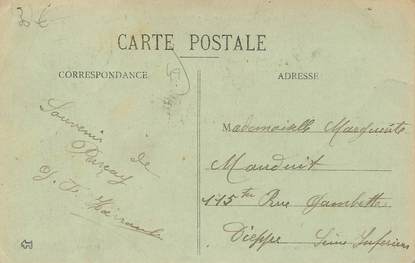 30 €
CARTE POSTALE
CORRESPONDANCE
ADRESSE
Souvenir de
Mademoiselle Marguerite
Mauduit
115 ter Rue Gambetta
Dieppe Seine Inférieure